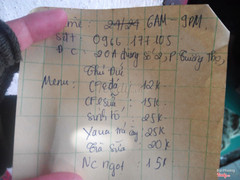 24/24 6AM - 9PM
SĐT: 0966 177105
ĐC: 20A đường số 2, P Trường Thọ,
Thủ Đức
Menu: CF đá : 12K
CF sữa : 15K
sinh tố : 25K
Yaua : 25K
Trà Sữa : 20K
Nc ngọt : 15K